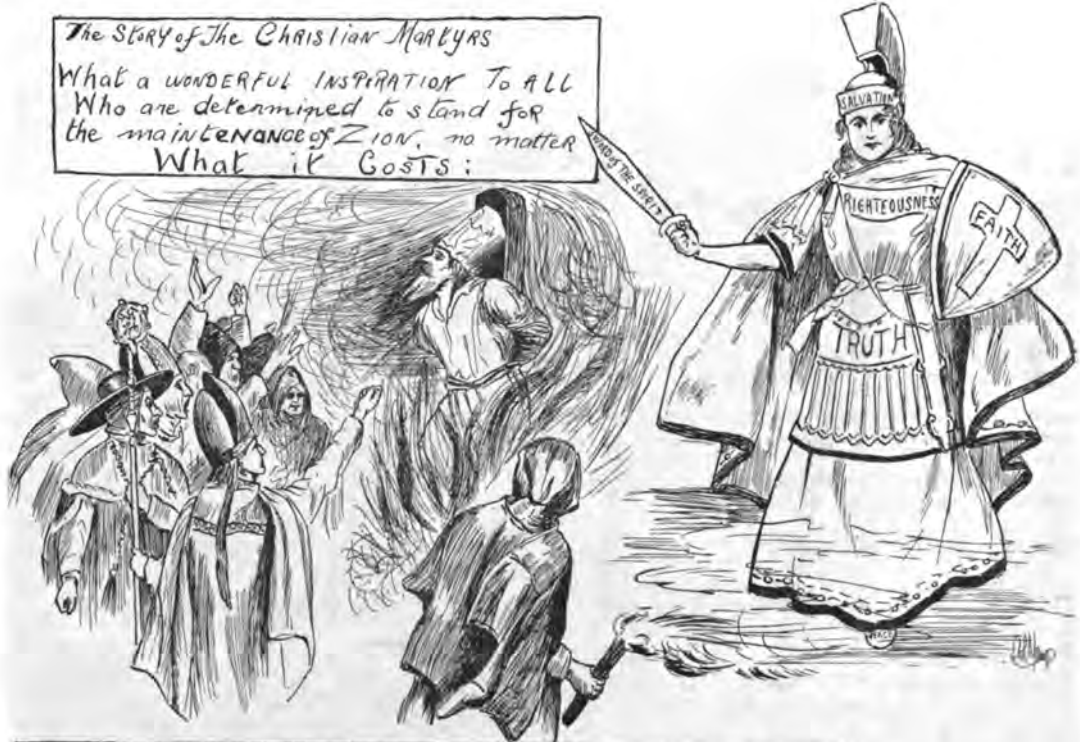 The Story of The Christian Martyrs
What a WONDERFUL INSPIRATION To ALL
Who are determined to stand for
the maintenance of Zion, no matter
What it Costs:
SALVATION
WORD OF THE SPIRIT
RIGHTEOUSNESS
FAITH
TRUTH